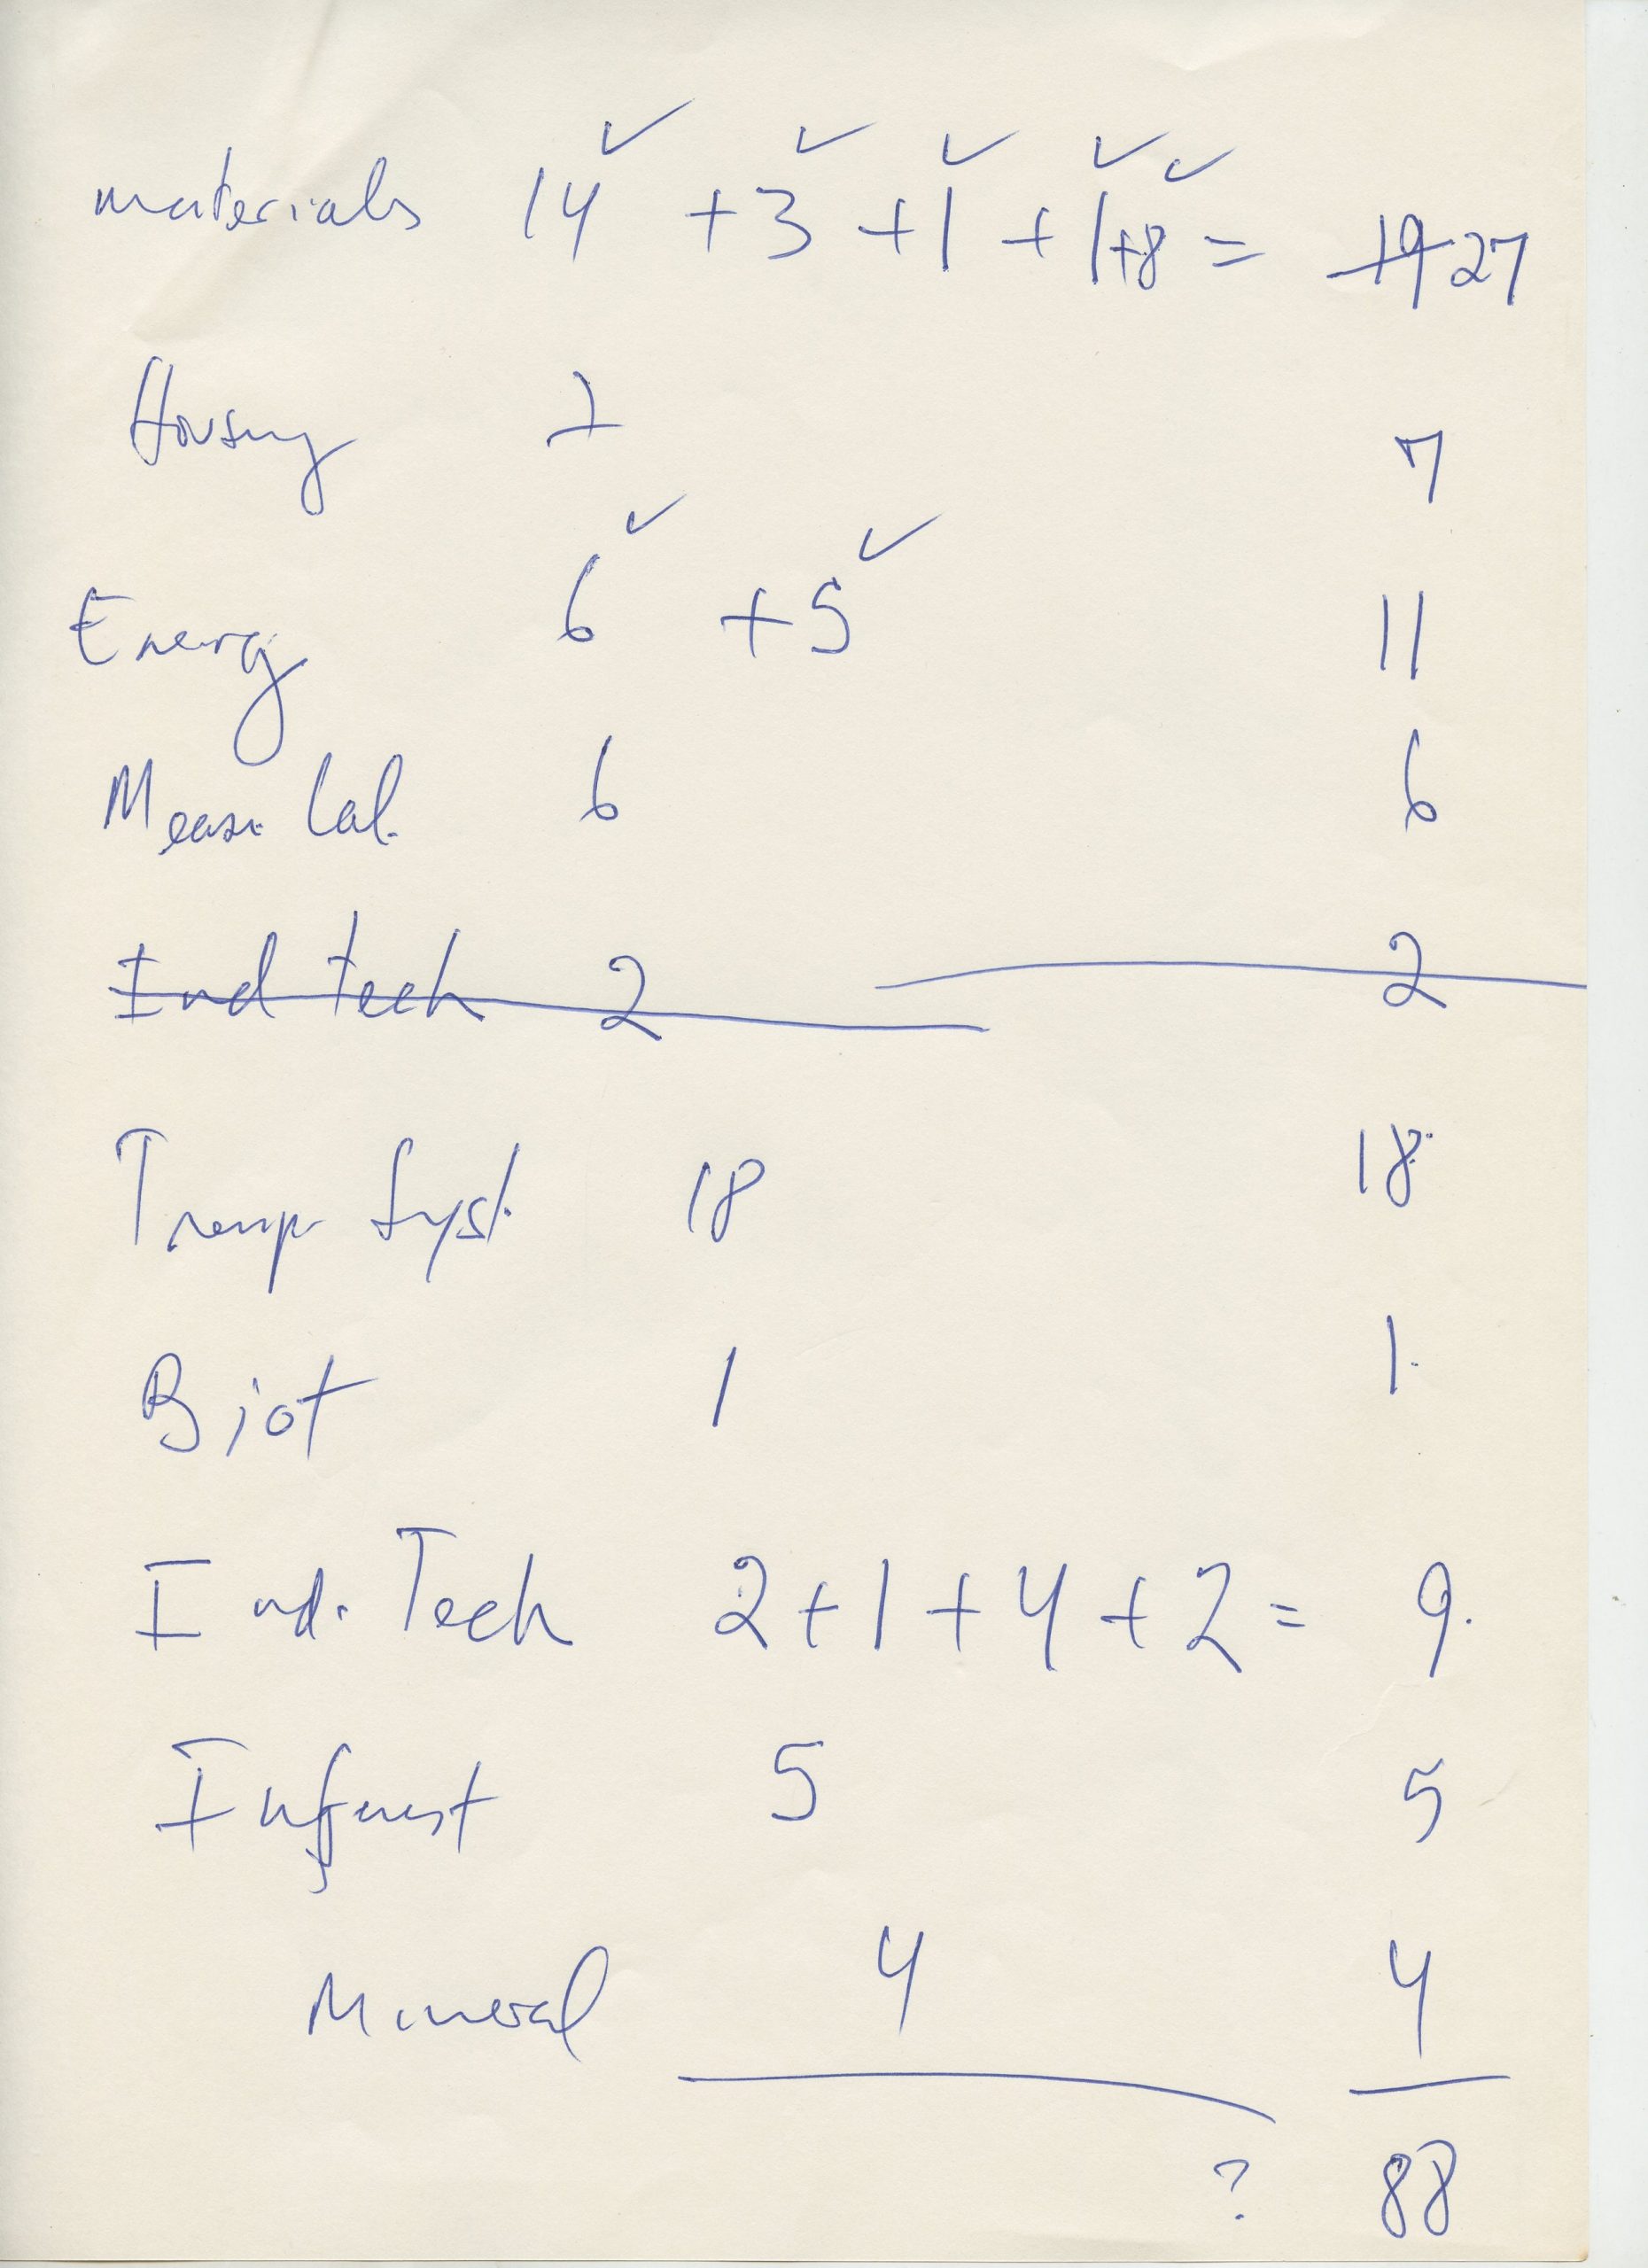 materials 14 ✓ + 3 ✓ + 1 ✓ + 1 ✓ + 8 ✓ = 19 27
Housing 7 7
Energy 6 ✓ + 5 ✓ 11
Meas. Cal. 6 6
Ind tech 2 2
Transp Syst. 18 18
Biot 1 1
Ind. Tech 2 + 1 + 4 + 2 = 9
Infrast 5 5
Mineral 4 4
? 88